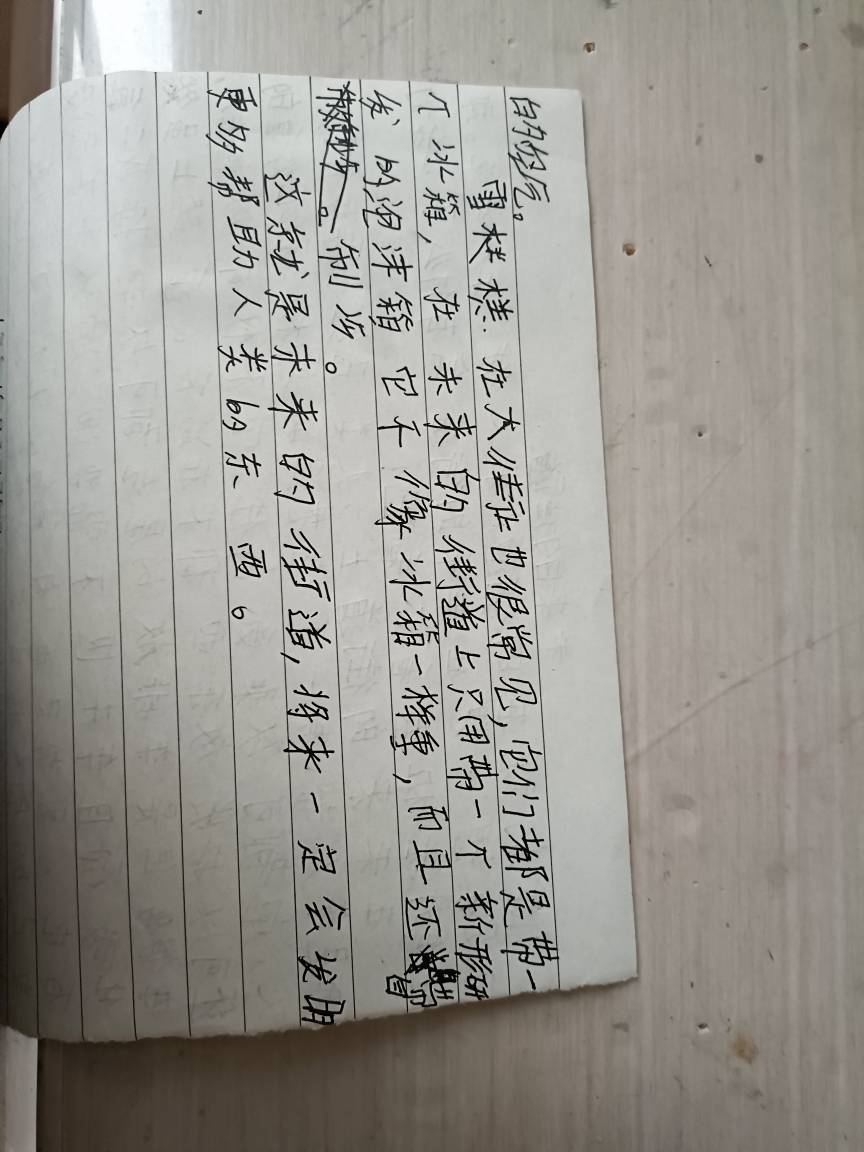 的空气。
雪糕, 在大街让也很常见,它们都是带一
个冰箱,在未来的街道上只用带一个新形研
发的泡沫箱 它不像冰箱一样重,而且还
制冷。
这就是未来的街道,将来一定会发明
更多帮助人类的东西。